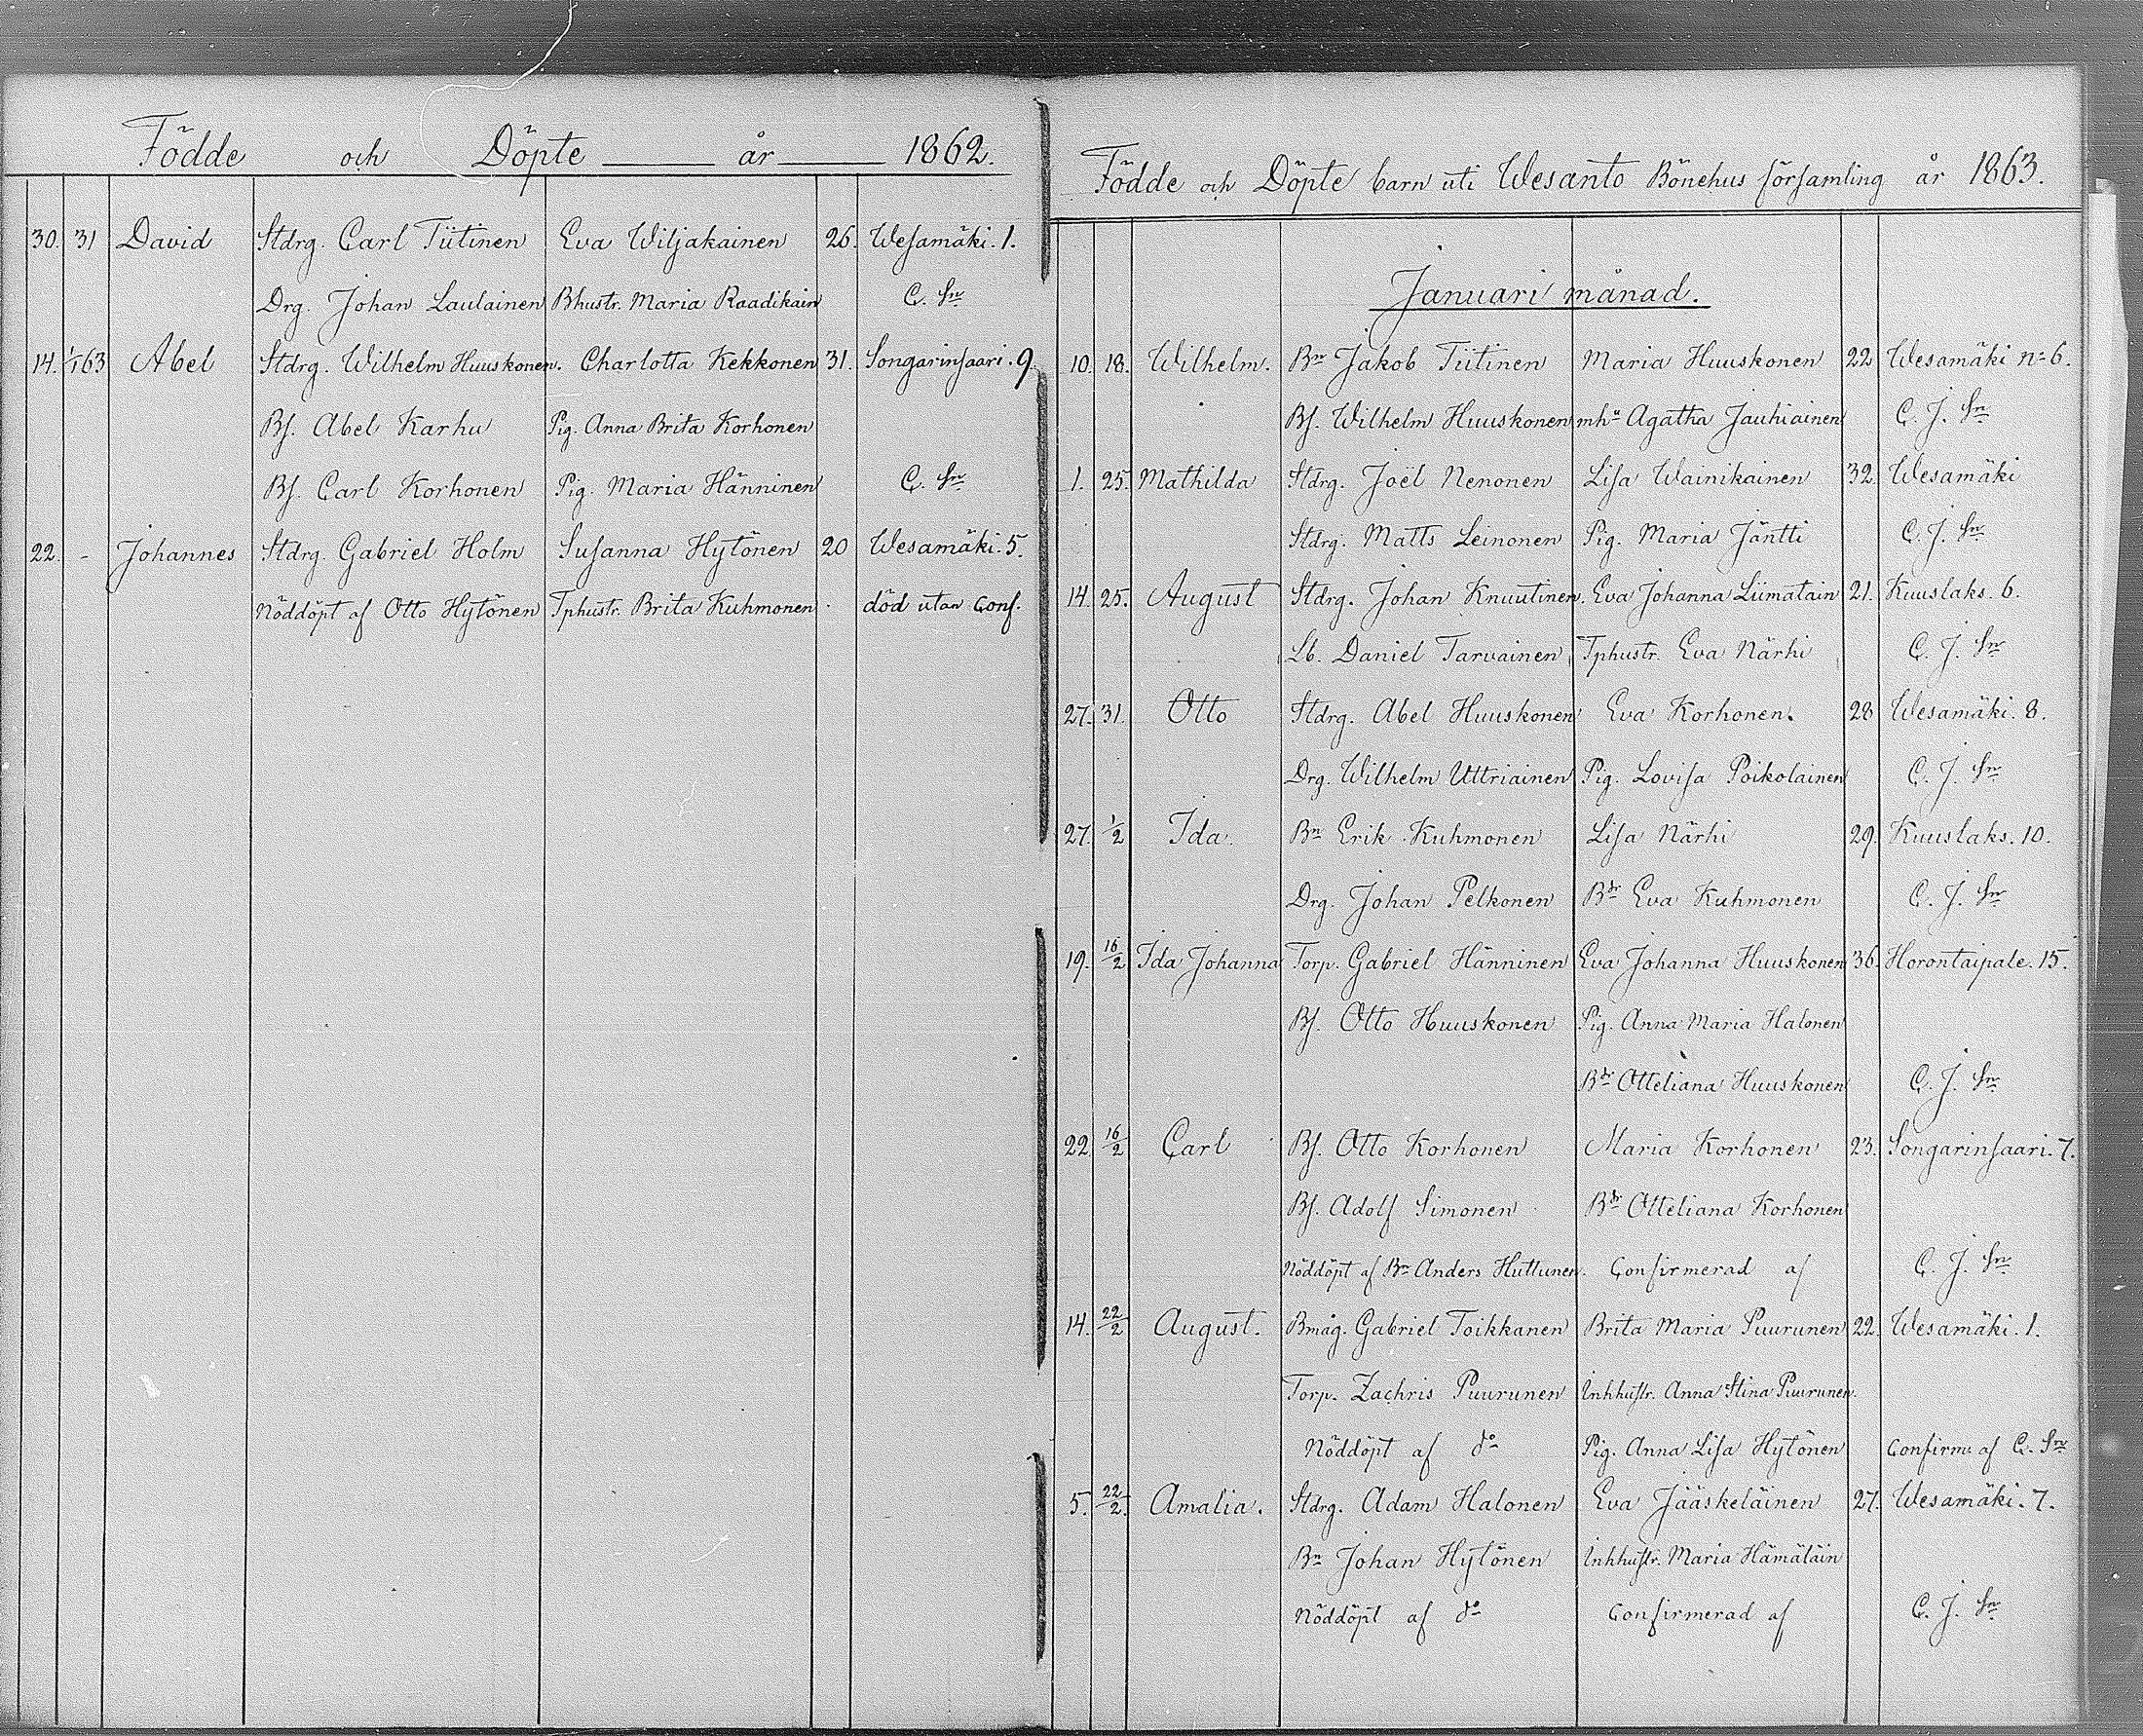 Födde och Döpte år 1862.
30. 31 David Stdrg. Carl Tiitinen Eva Wiljakainen 26. Wesamäki. 1.
Drg. Johan Laulainen Bhustr. Maria Raadikain C. Sn
14. 1/1 63 Abel Stdrg. Wilhelm Huuskonen. Charlotta Kekkonen 31. Songarinsaari. 9.
Bs. Abel Karhu Pig. Anna Brita Korhonen
Bs. Carl Korhonen Pig. Maria Hänninen C. Sn
22. - Johannes Stdrg. Gabriel Holm Susanna Hytönen 20 Wesamäki. 5.
Nöddöpt af Otto Hytönen Tphustr. Brita Kuhmonen död utan Conf.
Födde och Döpte barn uti Wesanto Bönehus församling år 1863.
Januari månad.
10. 18. Wilhelm. Bn Jakob Tiitinen Maria Huuskonen 22 Wesamäki no 6.
Bs. Wilhelm Huuskonen mhu Agatha Jauhiainen C. J. Sn
1. 25. Mathilda Stdrg. Joël Nenonen Lisa Wainikainen 32. Wesamäki
Stdrg. Matts Leinonen Pig. Maria Jäntti C. J. Sn
14. 25. August Stdrg. Johan Knuutinen. Eva Johanna Liimatain 21. Kuuslaks. 6.
Lb. Daniel Tarvainen Tphustr. Eva Närhi C. J. Sn
27. 31. Otto Stdrg. Abel Huuskonen Eva Korhonen. 28 Wesamäki. 8.
Drg. Wilhelm Uttriainen Pig. Lovisa Poikolainen C. J. Sn
27. 1/2 Ida. Bn Erik Kuhmonen Lisa Närhi 29. Kuuslaks. 10.
Drg. Johan Pelkonen Bdr Eva Kuhmonen C. J. Sn
19. 16/2 Ida Johanna Torp. Gabriel Hänninen Eva Johanna Huuskonen 36. Horontaipale. 15.
Bs. Otto Huuskonen Pig. Anna Maria Halonen
Bdr Otteliana Huuskonen C. J. Sn
22 16/2 Carl Bs. Otto Korhonen Maria Korhonen 23. Songarinsaari. 7.
Bs. Adolf Simonen Bdr Otteliana Korhonen
Nöddöpt af Bn Anders Huttunen. Confirmerad af C. J. Sn
14. 22/2 August. Bmåg. Gabriel Toikkanen Brita Maria Puurunen 22. Wesamäki. 1.
Torp. Zachris Puurunen Inhhustr. Anna Stina Puurunen.
Nöddöpt af do Pig. Anna Lisa Hytönen Confirm. af C. Sn
5. 22/2. Amalia. Stdrg. Adam Halonen Eva Jääskeläinen 27. Wesamäki. 7.
Bn Johan Hytönen Inhhustr. Maria Hämäläin
Nöddöpt af do Confirmerad af C. J. Sn